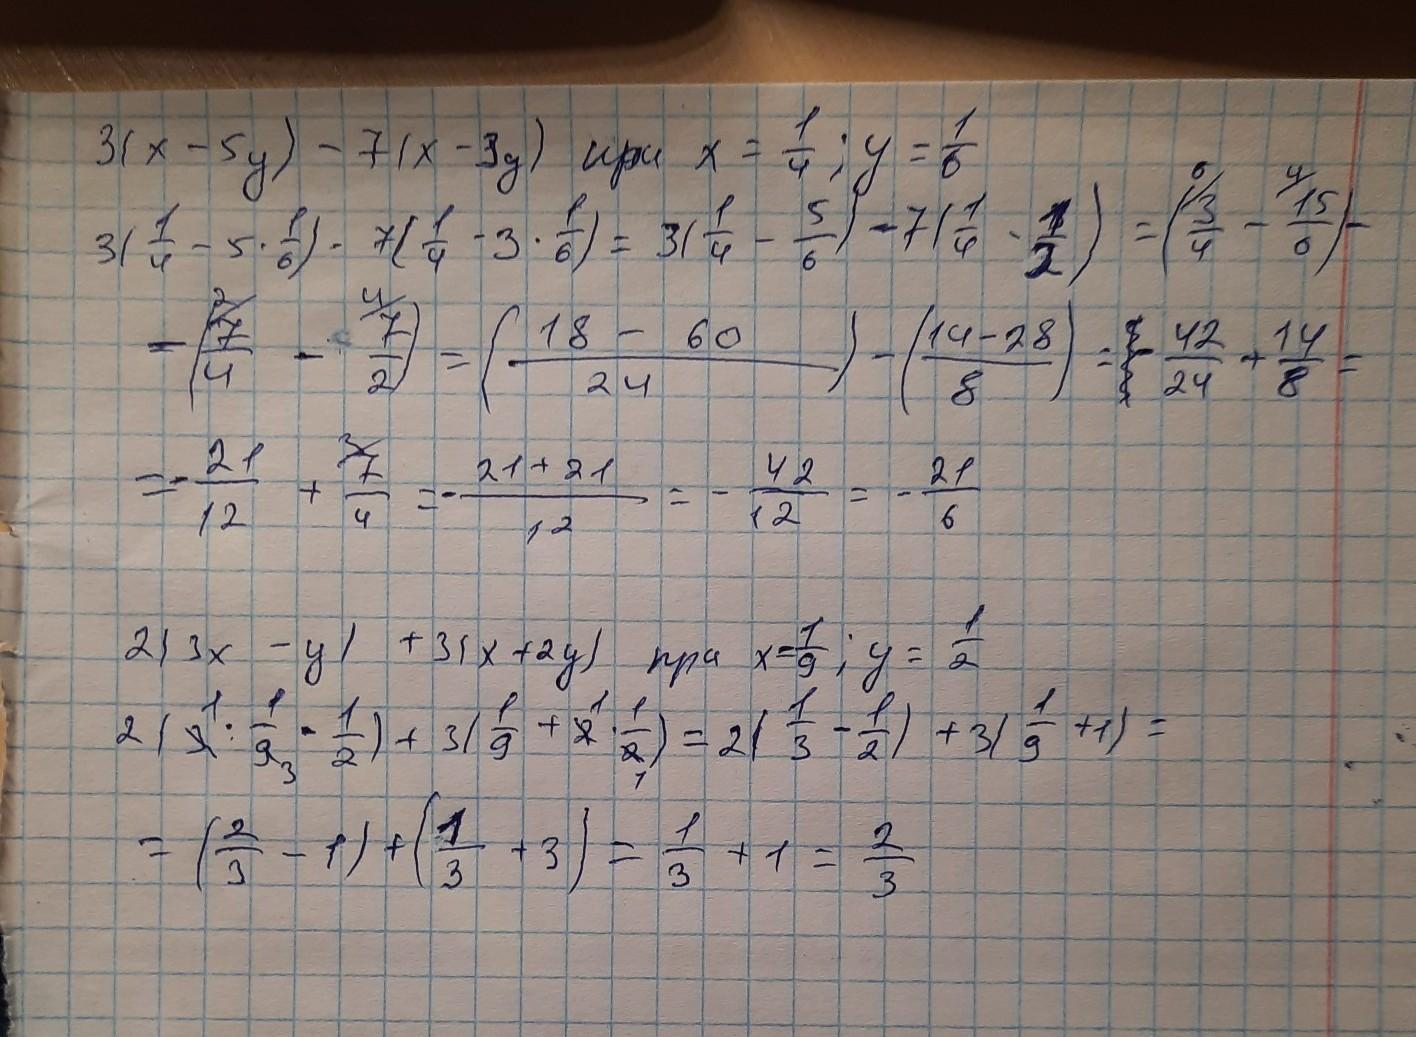 3(x - 5y) - 7(x - 3y) при x = 1/4; y = 1/6
3(1/4 - 5 · 1/6) - 7(1/4 - 3 · 1/6) = 3(1/4 - 5/6) - 7(1/4 - 1/2) = (3/4 - 15/6) -
- (7/4 - 7/2) = (18 - 60 / 24) - (14 - 28 / 8) = - 42/24 + 14/8 =
= - 21/12 + 7/4 = - 21 + 21 / 12 = - 42/12 = - 21/6
2(3x - y) + 3(x + 2y) при x = 1/9; y = 1/2
2(3 · 1/9 - 1/2) + 3(1/9 + 2 · 1/2) = 2(1/3 - 1/2) + 3(1/9 + 1) =
= (2/3 - 1) + (1/3 + 3) = 1/3 + 1 = 2/3